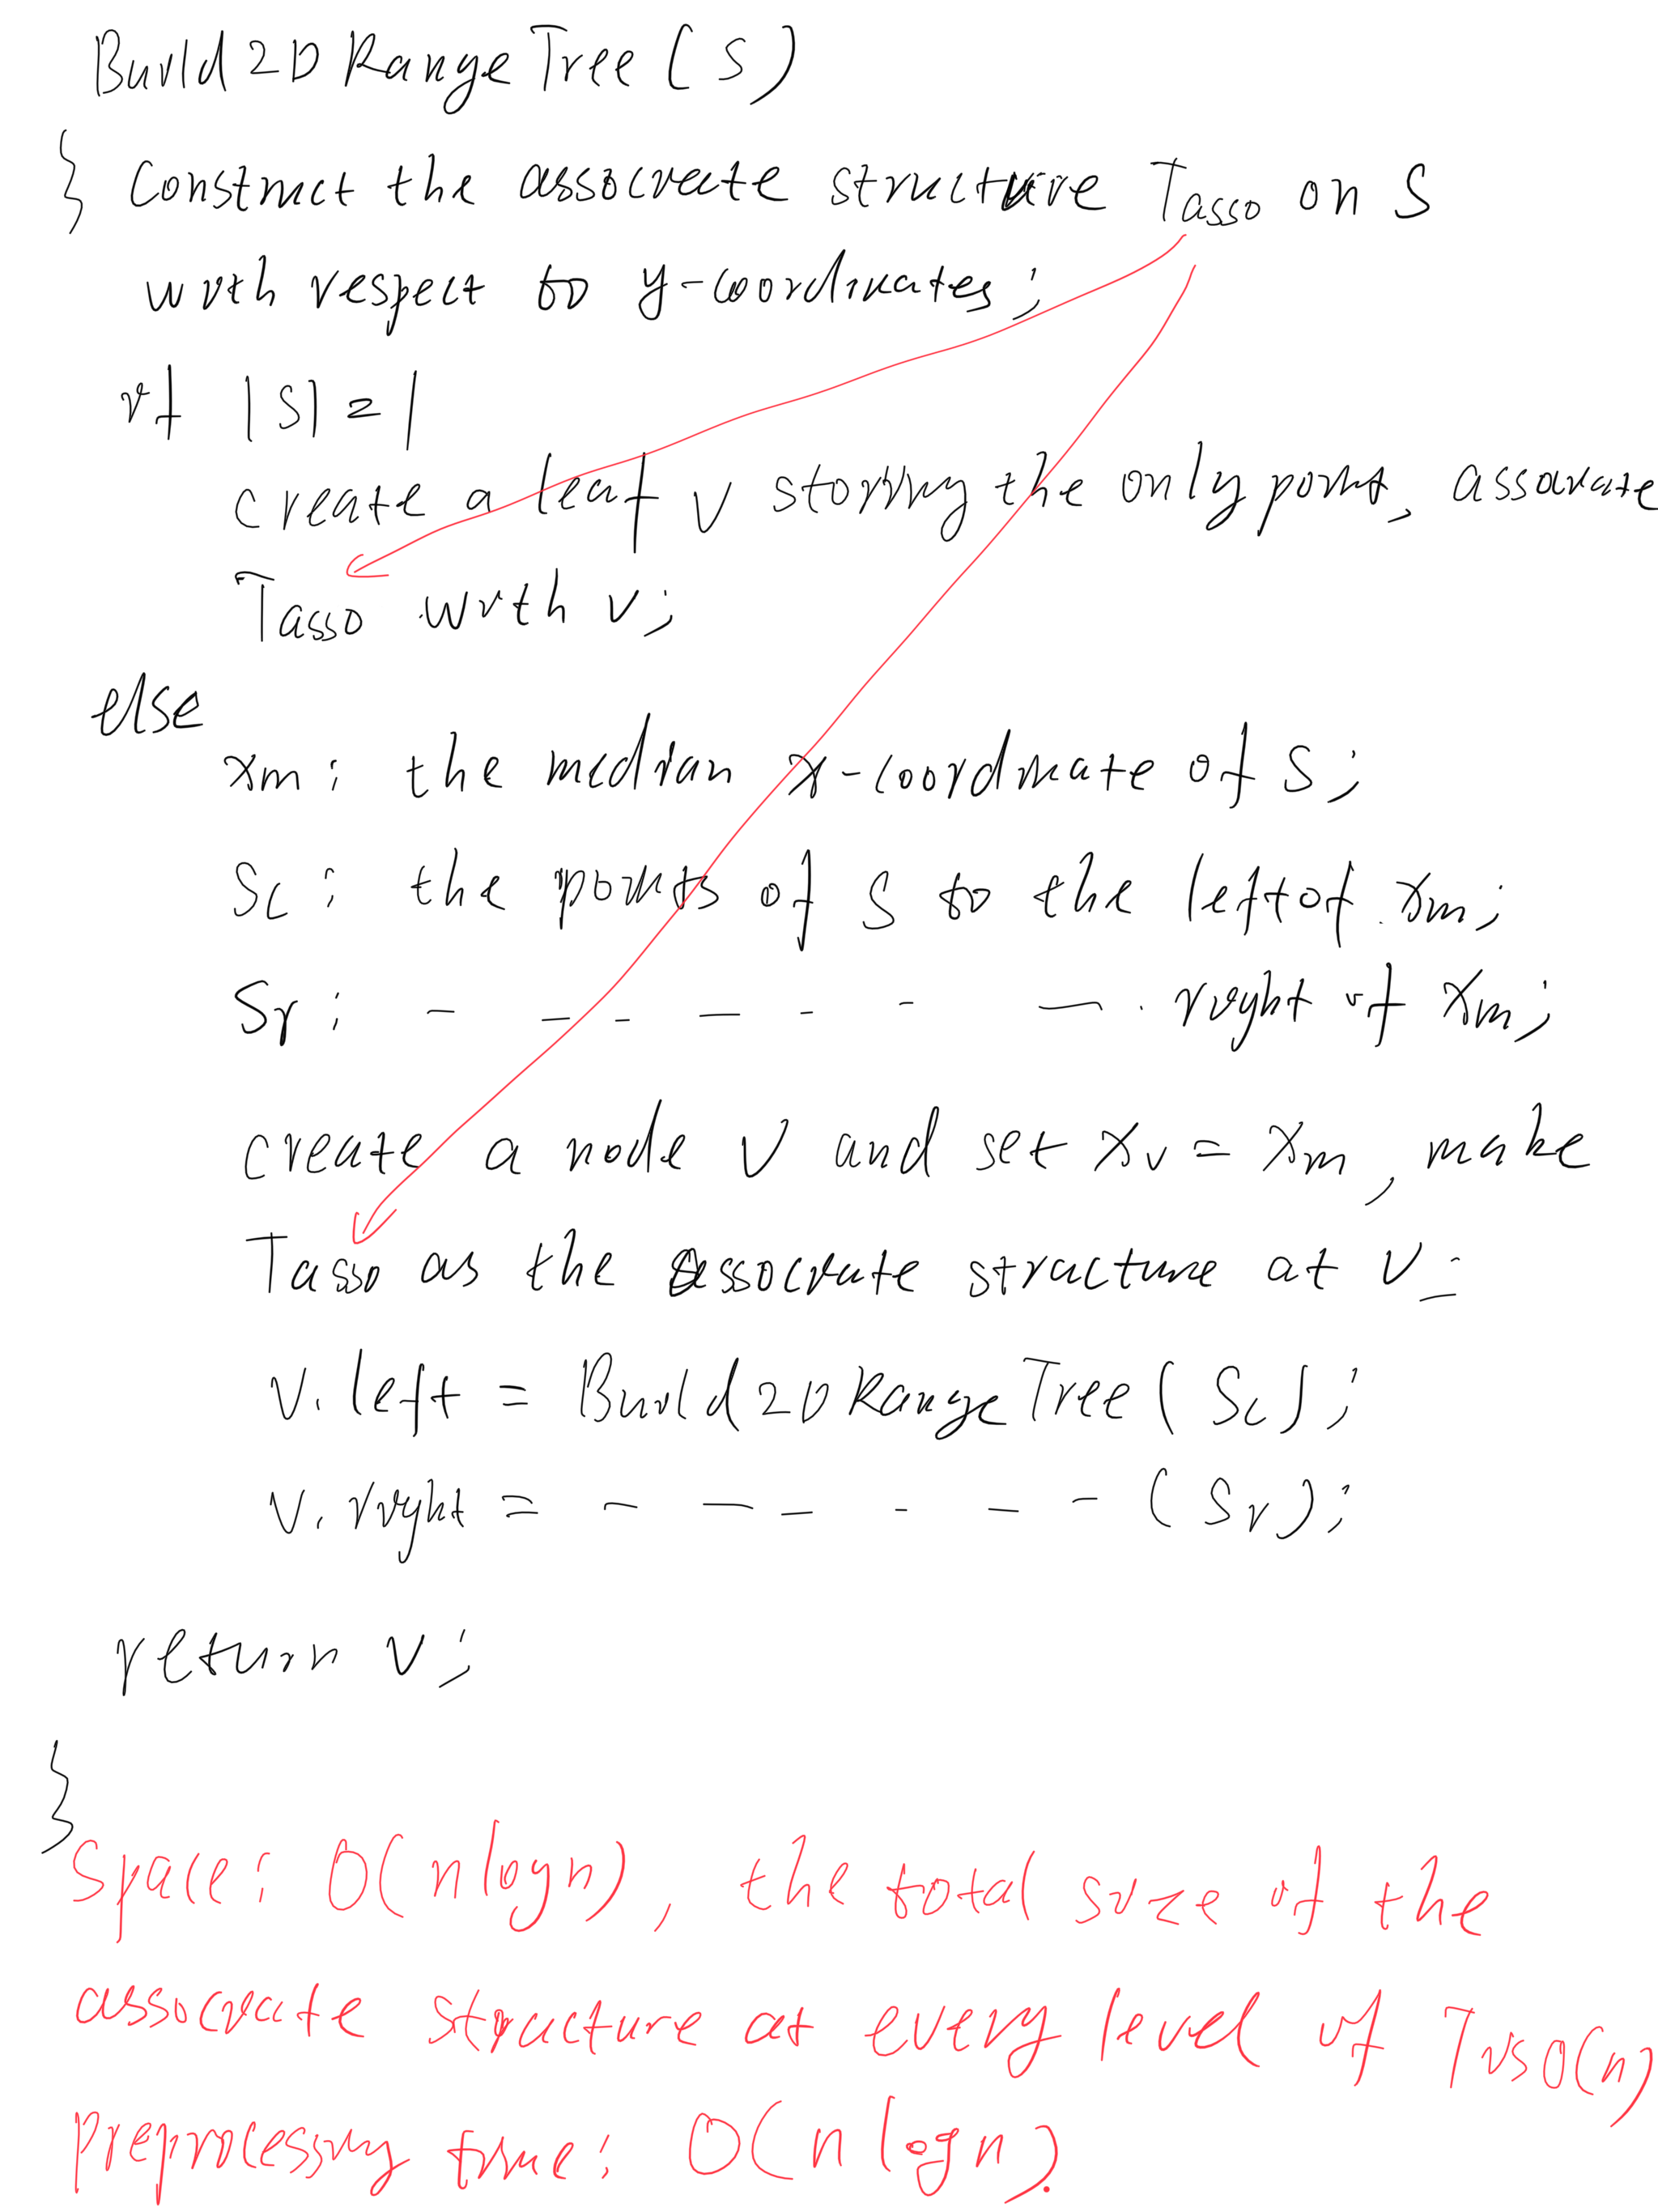 Build2DRangeTree(S)
{ Construct the associate structure Tasso on S
with respect to y-coordinates;
if |S| = 1
create a leaf v storing the only point, associate
Tasso with v;
else
xm: the median x-coordinate of S;
Sl: the points of S to the left of xm;
Sr: - - - - - - - . right of xm;
create a node v and set xv = xm, make
Tasso as the associate structure at v;
v.left = Build2DRangeTree(Sl);
v.right = - - - - - - (Sr);
return v;
}
Space: O(nlogn), the total size of the
associate structure at every level of T is O(n)
Preprocessing time: O(nlogn).